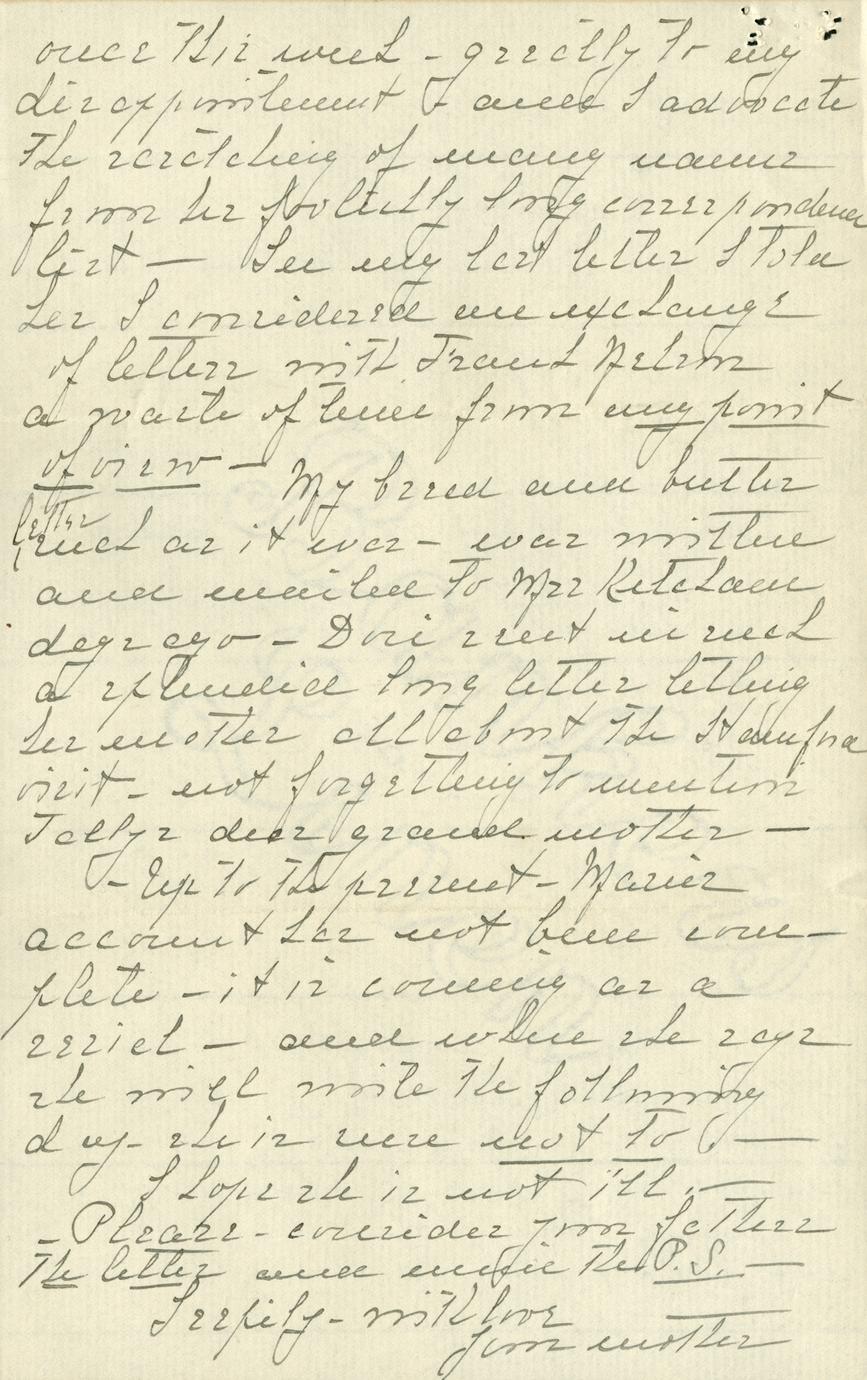 once this week - greatly to my
disappointment & and I advocate
the scratching of many names
from her foolishly long correspondence
list — In my last letter I told
her I considered an exchange
of letters with Frank Nelson
a waste of time from my point
of view — My bread and butter
letter
such as it was - was written
and mailed to Mrs Ketcham
days ago - Doris sent in such
a splendid long letter telling
her mother all about the Stamford
visit - not forgetting to mention
Tally's dear grand mother —
- Up to the present - Maries
account has not been com-
plete - it is coming as a
serial - and when she says
she will write the following
day - she is sure not to —
I hope she is not ill. —
- Please - consider your fathers
the letter and mine the P.S. —
Sleepily - with love
your mother